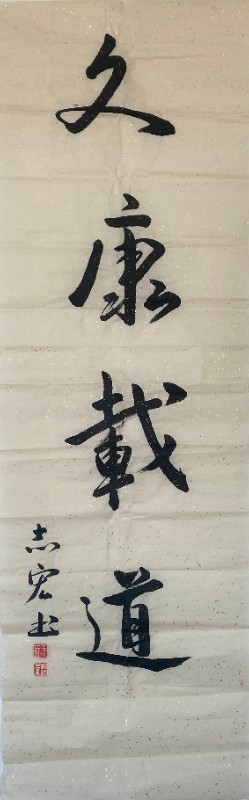 久康載道
志宏书